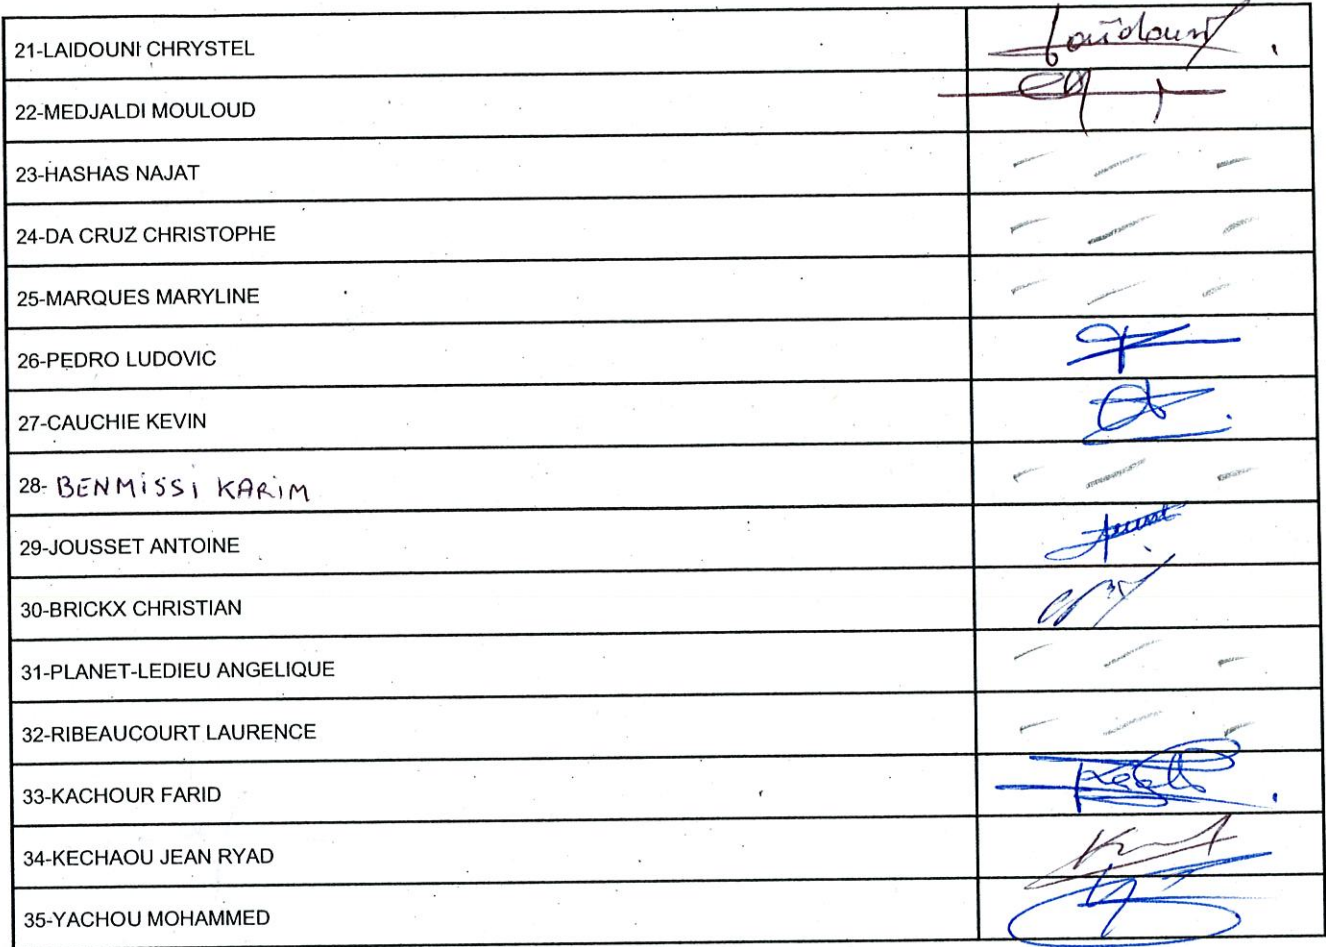 21-LAIDOUNI CHRYSTEL
22-MEDJALDI MOULOUD
23-HASHAS NAJAT
24-DA CRUZ CHRISTOPHE
25-MARQUES MARYLINE
26-PEDRO LUDOVIC
27-CAUCHIE KEVIN
28- BENMISSI KARIM
29-JOUSSET ANTOINE
30-BRICKX CHRISTIAN
31-PLANET-LEDIEU ANGELIQUE
32-RIBEAUCOURT LAURENCE
33-KACHOUR FARID
34-KECHAOU JEAN RYAD
35-YACHOU MOHAMMED